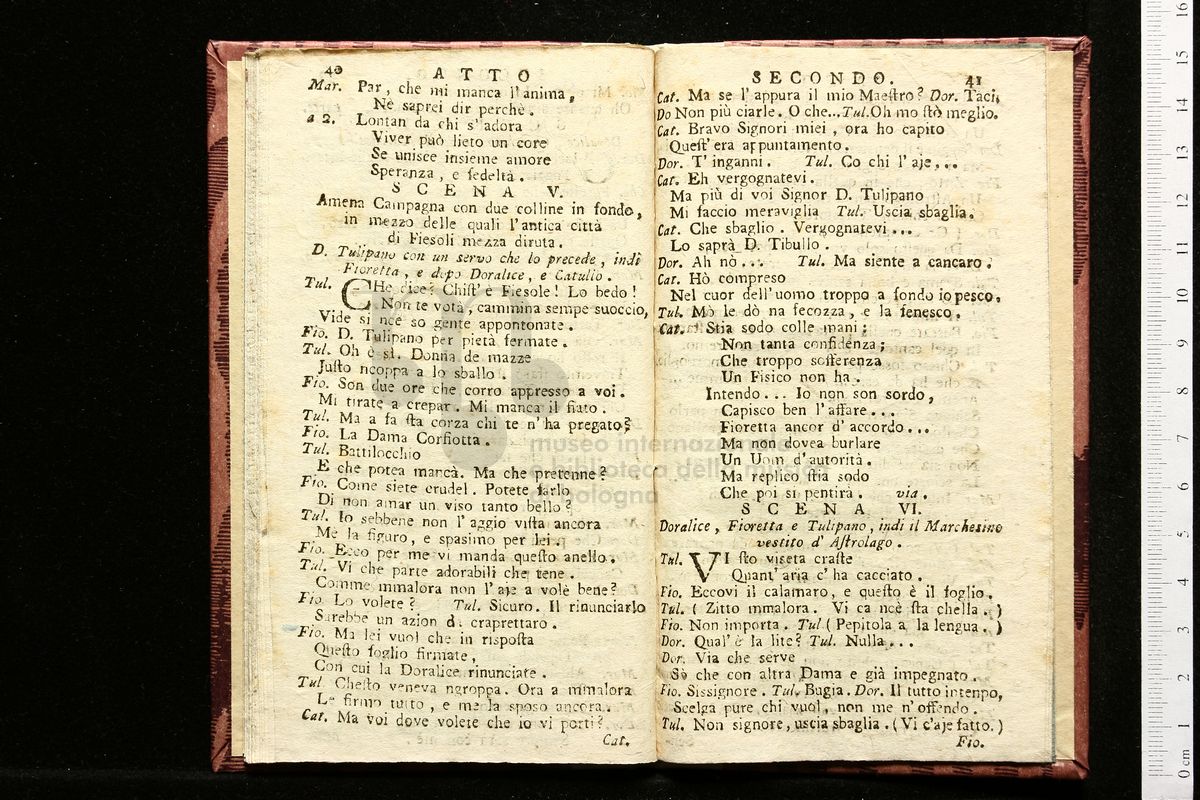 40
ATTO
Mar. Par, che mi manca l'anima,
Nè saprei dir perchè.
a 2. Lontan da chi s'adora
Viver può lieto un core
Se unisce insieme amore
Speranza, e fedeltà.
SCENA V.
Amena Campagna con due colline in fondo,
in mezzo delle quali l'antica città
di Fiesoli mezza diruta.
D. Tulipano con un servo che lo precede, indi
Fioretta, e dopo Doralice, e Catullo.
Tul. CHe dice? Chist' è Fiesole! Lo bedo!
Non te votà, cammina sempe suoccio,
Vide si nce so gente appontonate.
Fio. D. Tulipano per pietà fermate.
Tul. Oh è sì. Donna de mazze
Justo ncoppa a lo sballo
Fio. Son due ore che corro appresso a voi.
Mi tirate a crepar. Mi manca il fiato.
Tul. Ma a fa sta corza chi te n'ha pregato?
Fio. La Dama Corfiotta.
Tul. Battilocchio
E che potea mancà. Ma che pretenne?
Fio. Come siete crudel. Potete farlo
Di non amar un viso tanto bello?
Tul. Io sebbene non l'aggio vista ancora
Me la figuro, e spasimo per lei.
Fio. Ecco per me vi manda questo anello.
Tul. Vi che parte adorabili che tene.
Comme mmalora non l'aje a volè bene?
Fio Lo volete? Tul. Sicuro. Il rinunciarlo
Sarebbe un azion di craprettaro.
Fio. Ma lei vuol che in risposta
Questo foglio firmate,
Con cui la Doralice rinunciate.
Tul Chesto veneva ngroppa. Ora a mmalora
Le firmo tutto, e me la sposo ancora.
Cat. Ma voi dove volete che io vi porti?
Cat.
SECONDO.
41
Cat. Ma se l'appura il mio Maestro? Dor. Taci,
Do Non più ciarle. O che... Tul. Oh mo stò meglio.
Cat. Bravo Signori miei, ora ho capito
Quest'era appuntamento.
Dor. T'inganni. Tul. Co chi l'aje...
Cat. Eh vergognatevi.
Ma più di voi Signor D. Tulipano
Mi faccio meraviglia Tul. Uscia sbaglia.
Cat. Che sbaglio. Vergognatevi...
Lo saprà D. Tibullo.
Dor. Ah nò... Tul. Ma siente a cancaro.
Cat. Hò compreso
Nel cuor dell'uomo troppo a fondo io pesco.
Tul. Mò le dò na fecozza, e la fenesco.
Cat. Stia sodo colle mani;
Non tanta confidenza;
Che troppo sofferenza
Un Fisico non ha.
Intendo... Io non son sordo,
Capisco ben l'affare...
Fioretta ancor d'accordo...
Ma non dovea burlare
Un Uom d'autorità.
Ma replico stia sodo
Che poi si pentirà. via.
SCENA VI.
Doralice, Fioretta e Tulipano, indi il Marchesino
vestito d'Astrolago.
Tul. VI sto viseta craste
Quant'aria c'ha cacciato.
Fio. Eccovi il calamaro, e questo è il foglio.
Tul. (Zitto mmalora. Vi ca nce sta chella.)
Fio. Non importa. Tul (Pepitola a la lengua.)
Dor. Qual'è la lite? Tul. Nulla...
Dor. Via che serve
Sò che con altra Dama e già impegnato.
Fio. Sissignore. Tul. Bugia. Dor. Il tutto intenpo,
Scelga pure chi vuol, non me n'offendo.
Tul. Non signore, uscia sbaglia. (Vi c'aje fatto.)
Fio.
museo internazionale
e biblioteca della musica
di bologna
16
15
14
13
12
11
10
9
8
7
6
5
4
3
2
1
0 cm